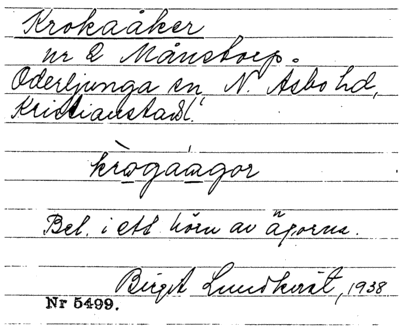 Krokaåker
nr 2 Månstorp.
Oderljunga sn N. Åsbo hd,
Kristianstads l.
krògaågor
Bel. i ett hörn av ägorna.
Birgit Lundkvist, 1938
Nr 5499.